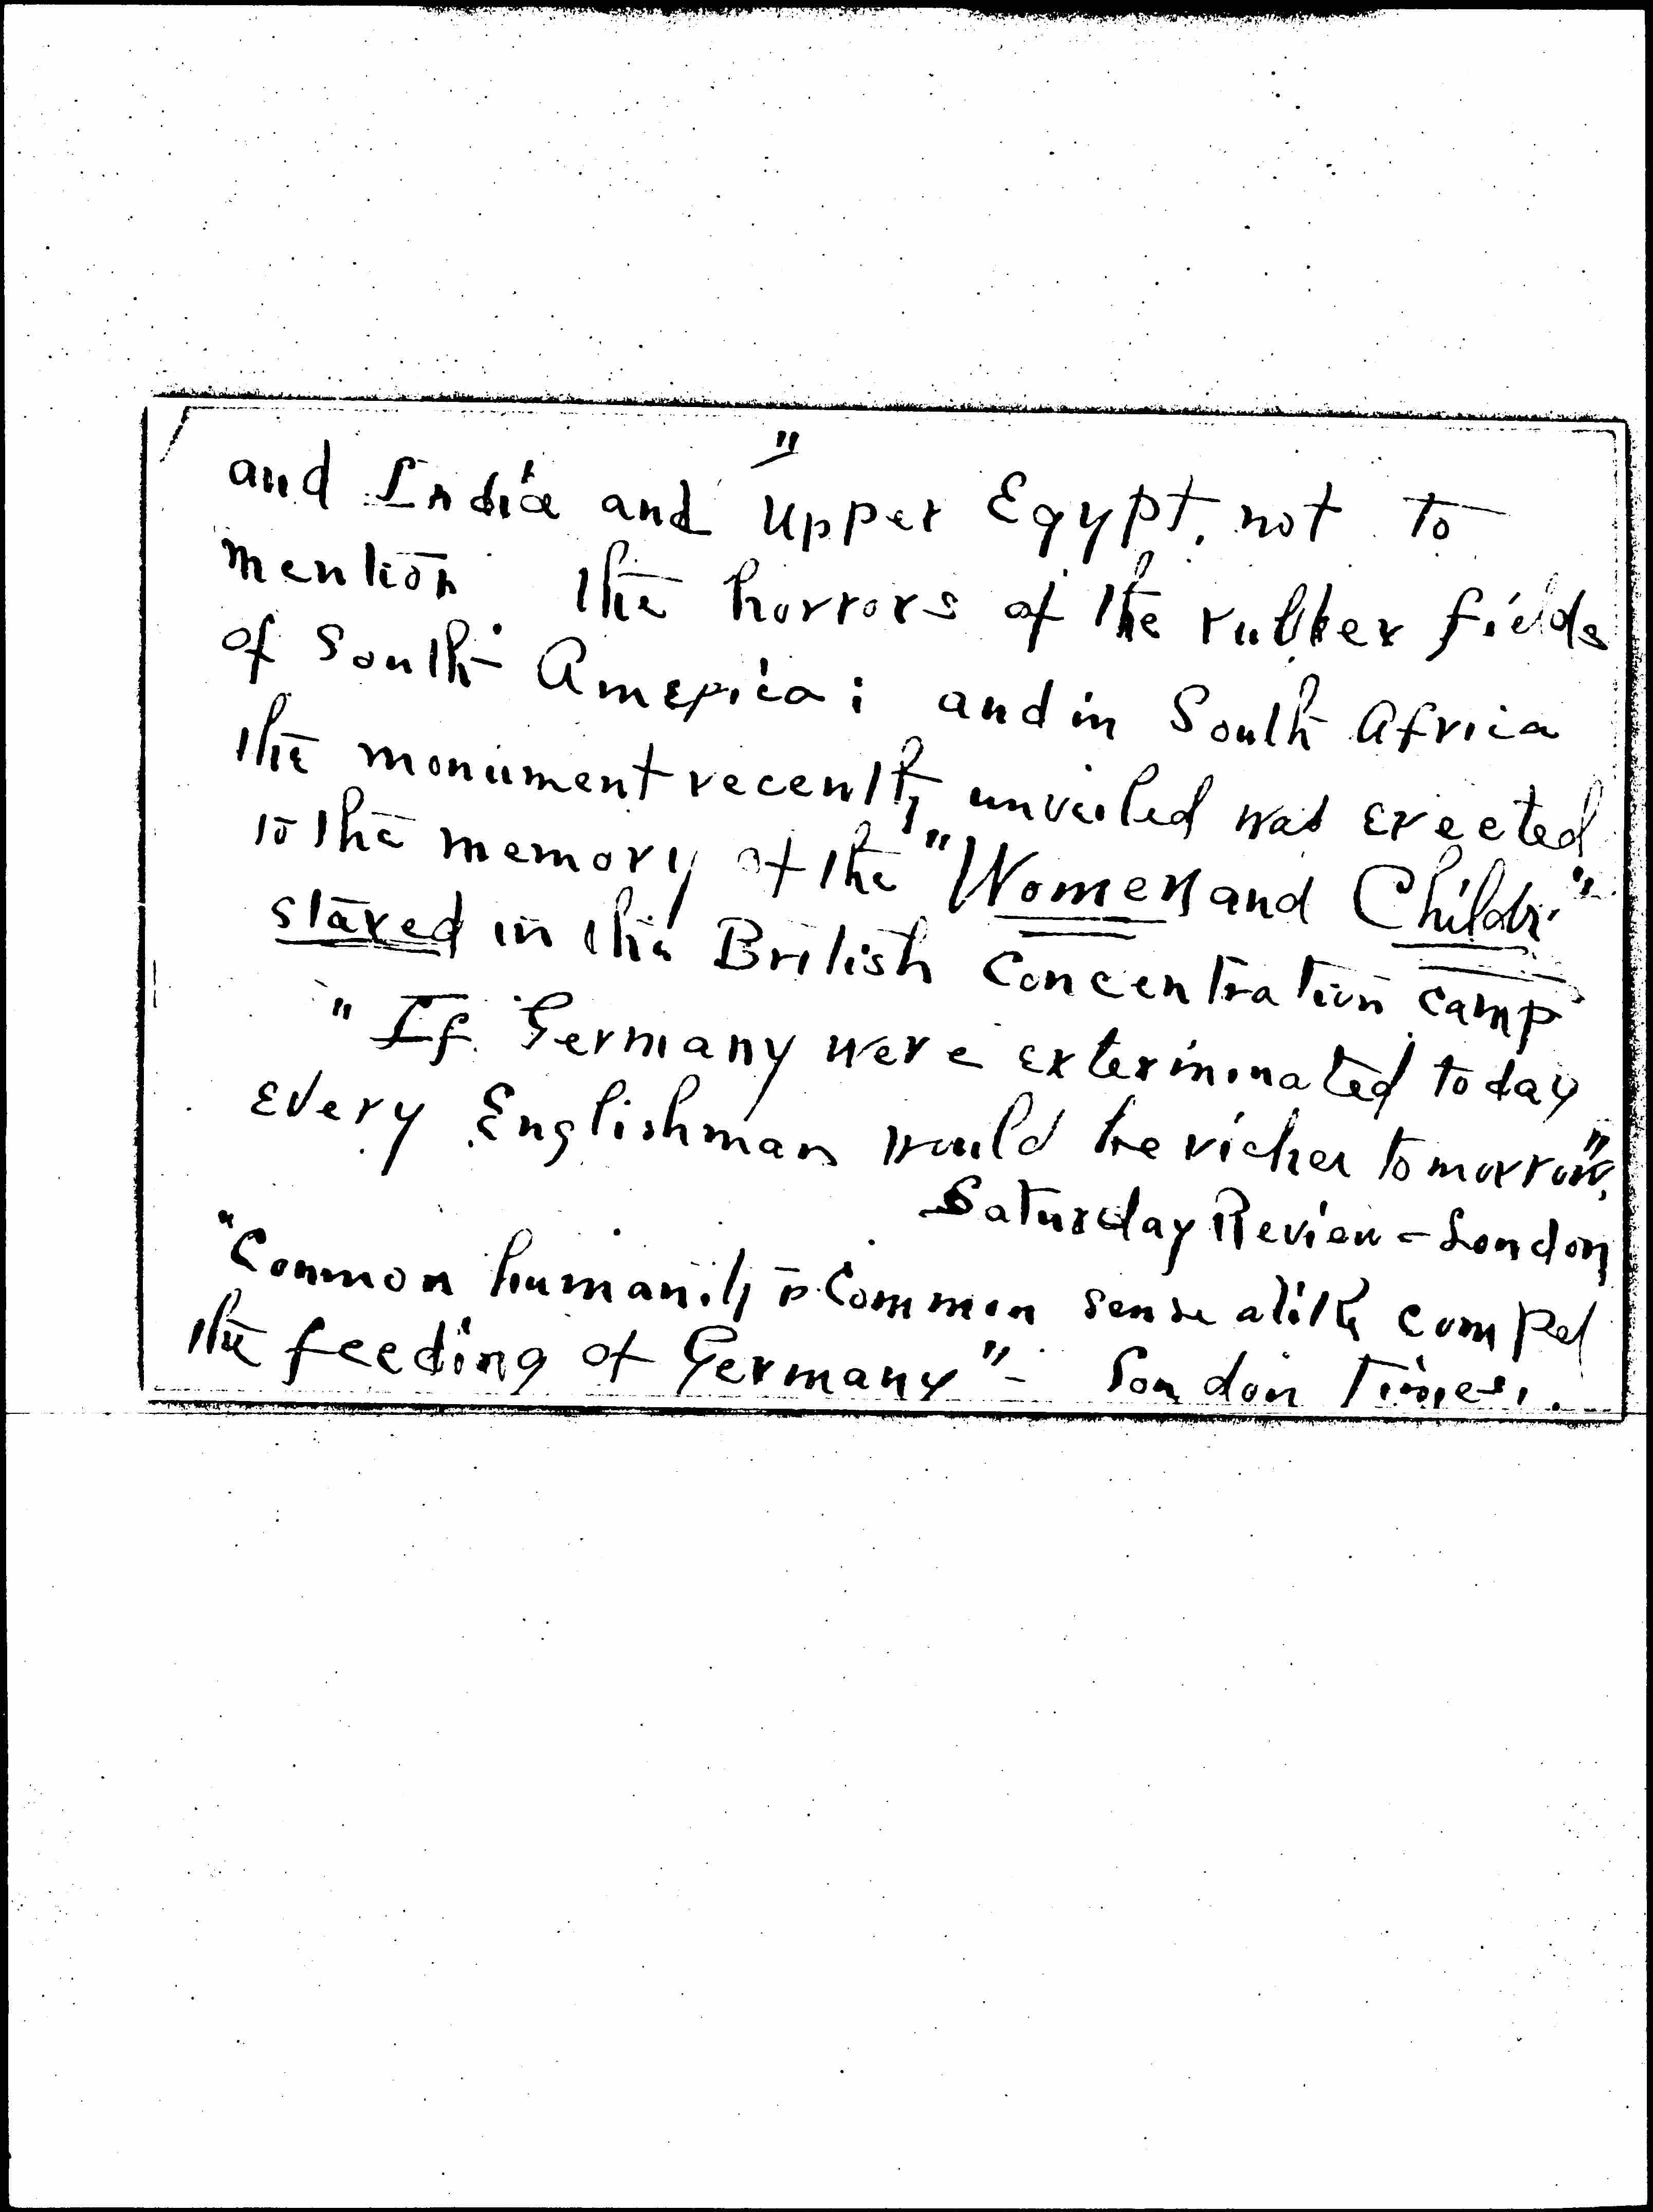 "
and India and Upper Egypt, not to
mention the horrors of the rubber fields
of South America; and in South Africa
the monument recently unveiled was erected
to the memory of the "Women and Childr."
starved in the British Concentration camp
"If Germany were exterminated today
Every Englishman would be richer tomorrow".
Saturday Review - London
"Common humanity & Common sense alike compel
the feeding of Germany" - London Times.